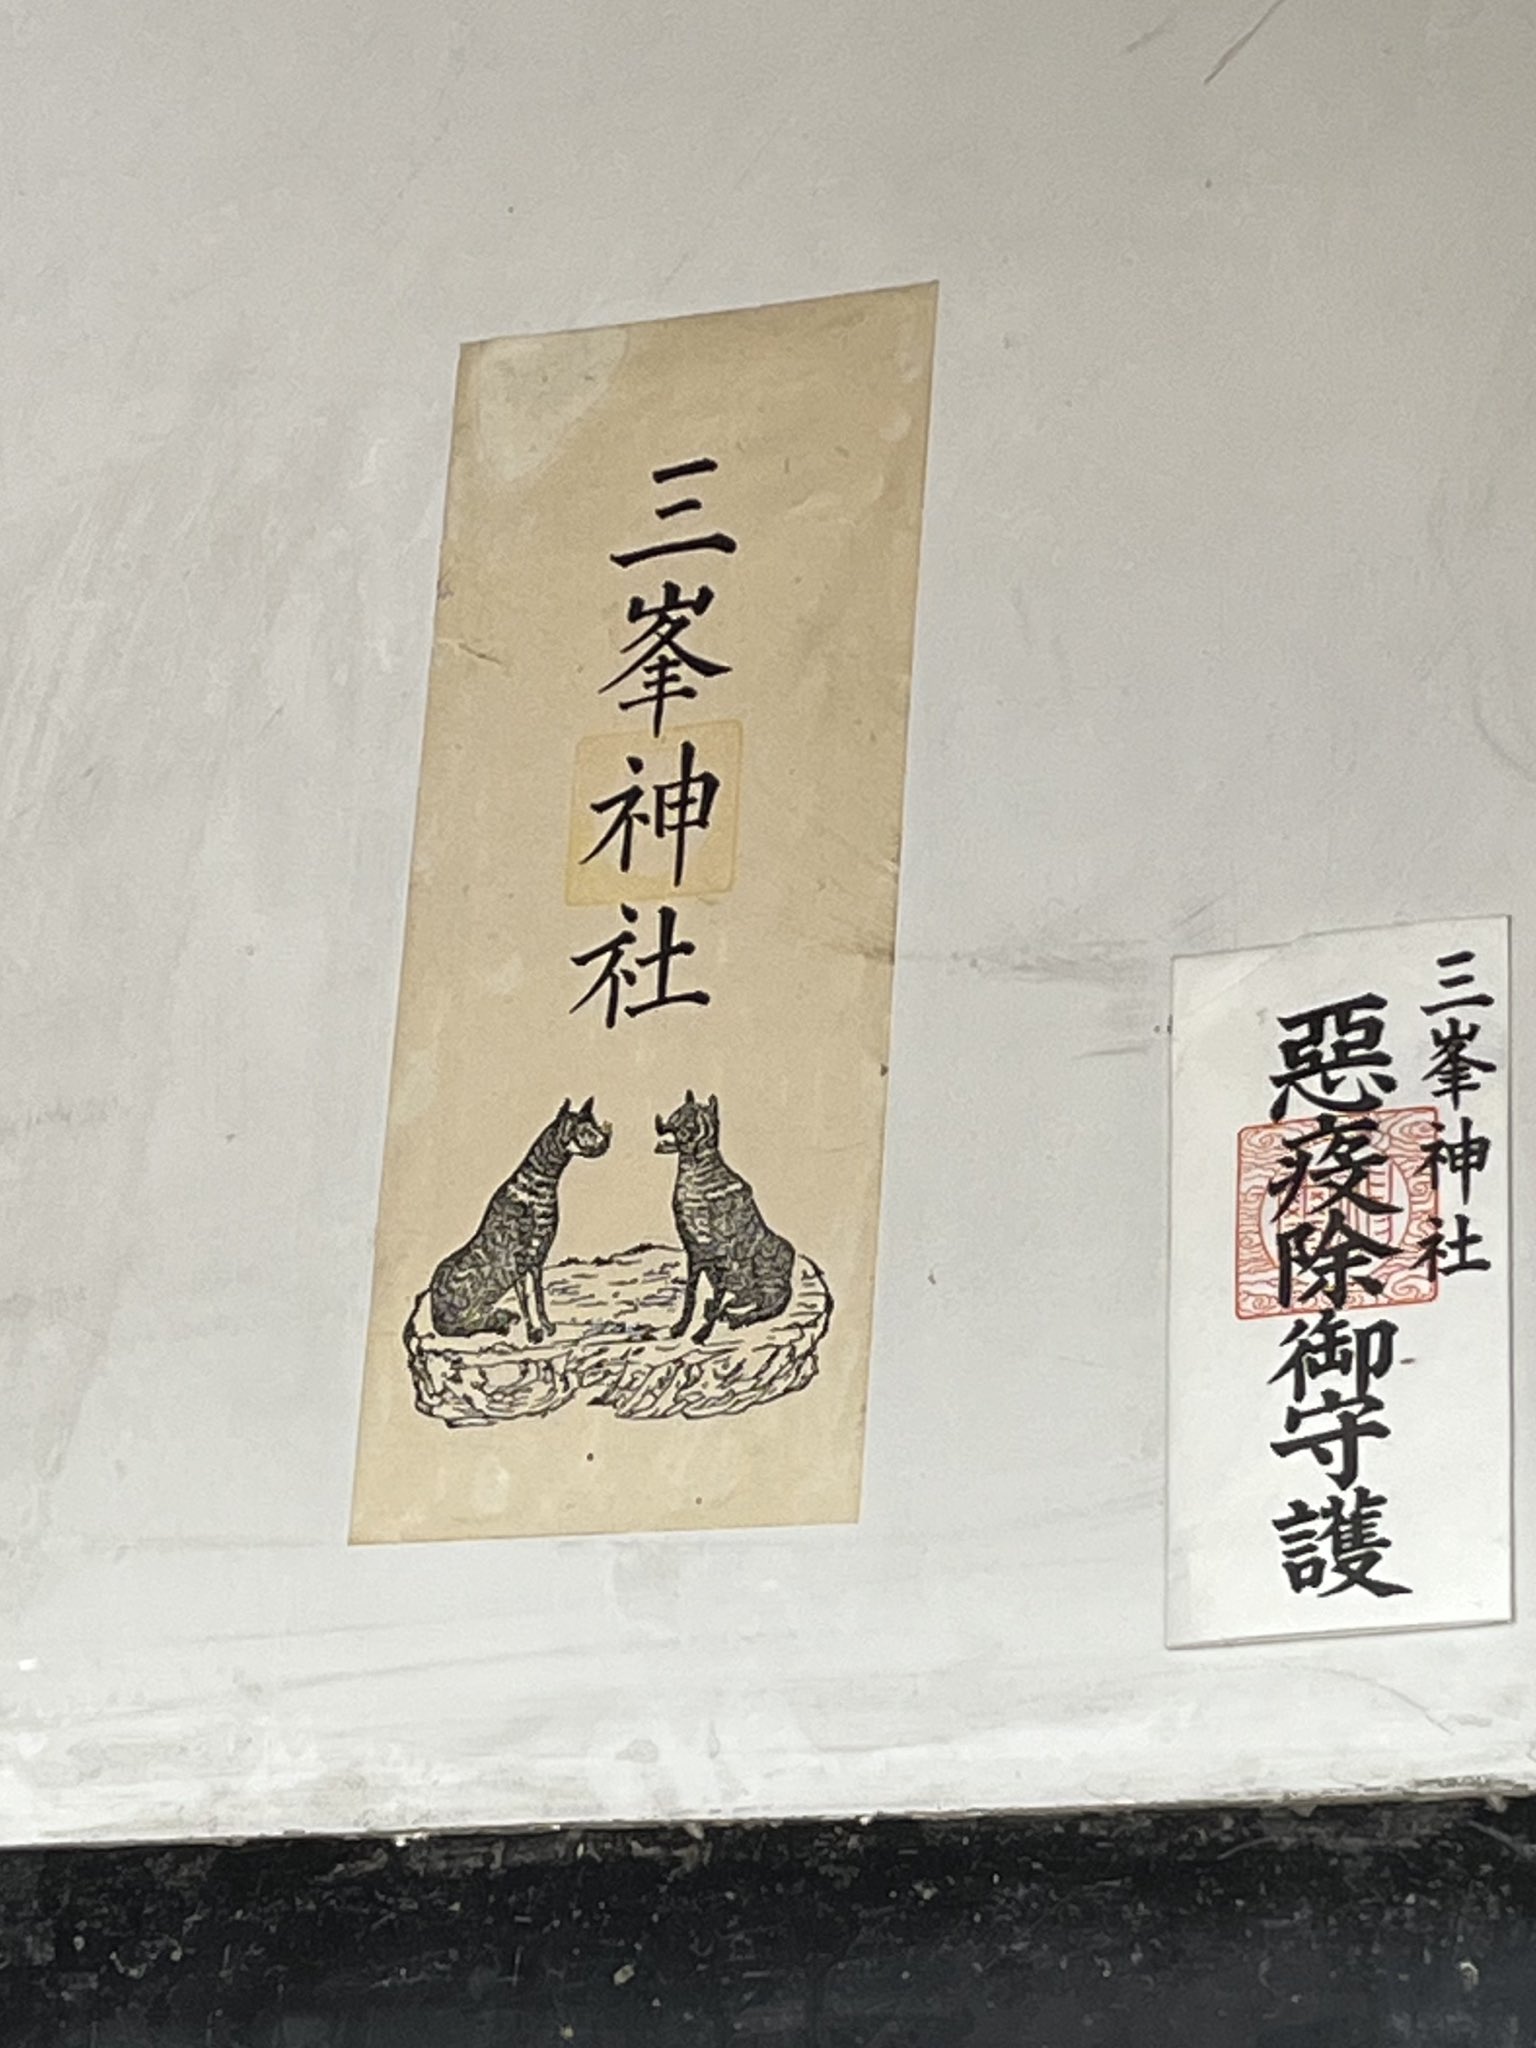 三峯神社
三峯神社
惡疫除御守護